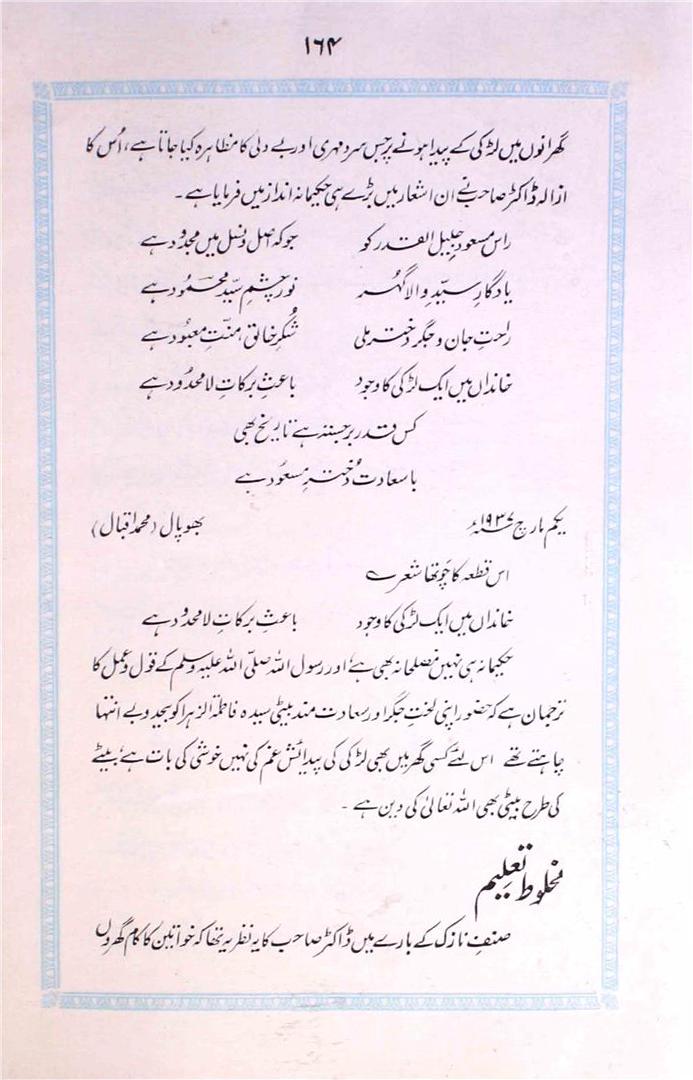 ۱۶۴
گھرانوں میں لڑکی کے پیدا ہونے پر جس سرد مہری اور بے دلی کا مظاہرہ کیا جاتا ہے، اُس کا
ازالہ ڈاکٹر صاحب نے ان اشعار میں بڑے ہی حکیمانہ انداز میں فرمایا ہے۔
راس مسعود جلیل القدر کو جو کہ اصل و نسل میں مجدود ہے
یادگارِ سیّدِ والا گہُر نورِ چشمِ سیّد محمُود ہے
راحتِ جان و جگر دخترِ ملی شُکرِ خالق، منتِ معبُود ہے
خانداں میں ایک لڑکی کا وجود باعثِ برکاتِ لامحدُود ہے
کس قدر برجستہ ہے تاریخ بھی
باسعادت دُخترِ مسعُود ہے
یکم مارچ ۱۹۳۷ء بھوپال (محمد اقبال)
اس قطعہ کا چوتھا شعر ؎
خانداں میں ایک لڑکی کا وجود باعثِ برکاتِ لامحدود ہے
حکیمانہ ہی نہیں مصلحانہ بھی ہے اور رسول اللہ صلّی اللہ علیہ وسلم کے قول و عمل کا
ترجمان ہے کہ حضور اپنی لختِ جگر اور سعادت مند بیٹی سیدہ فاطمۃ الزہرا کو بیحد و بے انتہا
چاہتے تھے اس لئے کسی گھر میں بھی لڑکی کی پیدائش غم کی نہیں خوشی کی بات ہے، بیٹے
کی طرح بیٹی بھی اللہ تعالیٰ کی دین ہے۔
مخلوط تعلیم
صنفِ نازک کے بارے میں ڈاکٹر صاحب کا یہ نظریہ تھا کہ خواتین کا کام گھروں